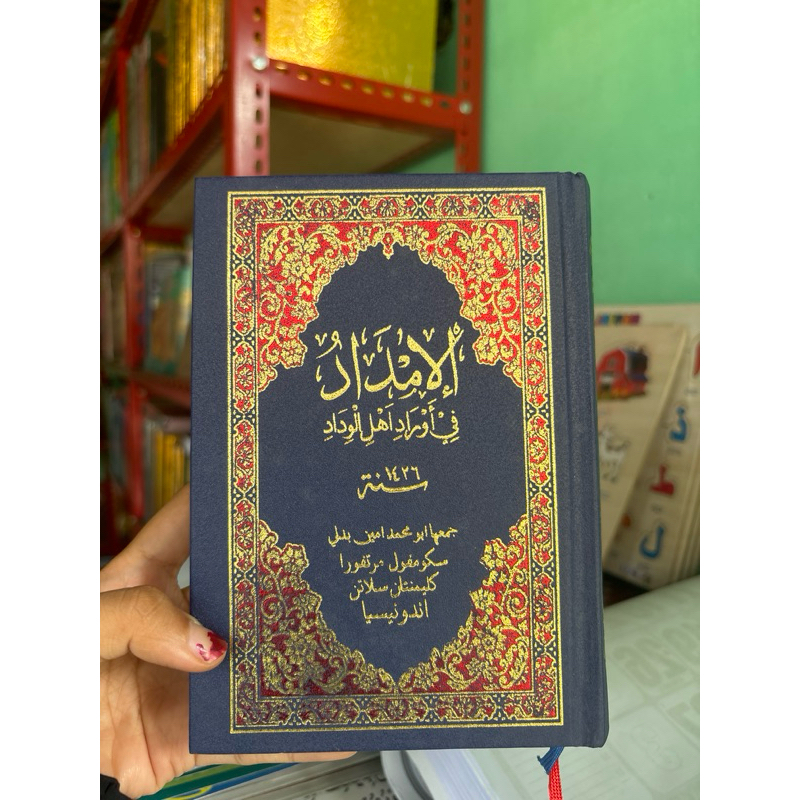 أَلْإِمْدَادُ
فِيْ أَوْرَادِ اَهْلِ الْوِدَادِ
سنة ١٤٢٦
جمعها ابو محمد امين بدلي
سكومفول مرتفورا
كليمنتان سلاتن
اندونيسيا